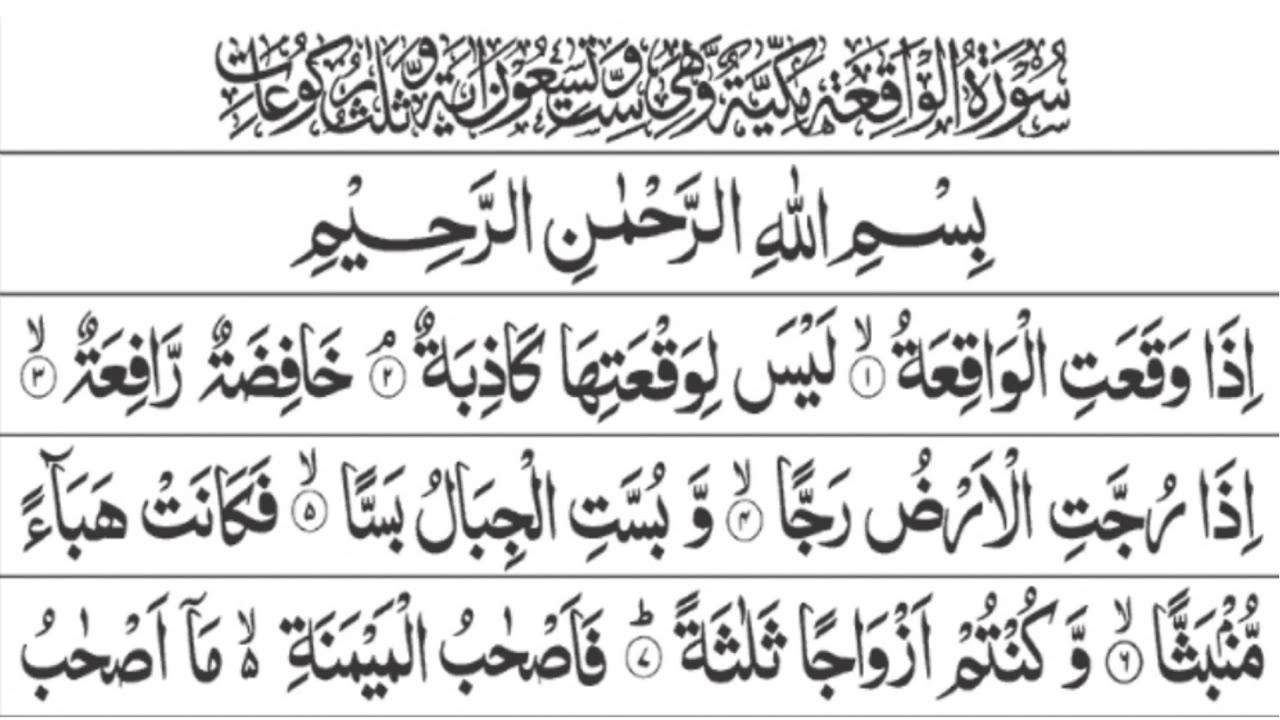 سُوْرَةُ الْوَاقِعَةِ مَكِّيَّةٌ وَّهِيَ سِتٌّ وَّتِسْعُوْنَ اٰيَةً وَّثَلٰثُ رُكُوْعَاتٍ
بِسْمِ اللّٰهِ الرَّحْمٰنِ الرَّحِيْمِ
اِذَا وَقَعَتِ الْوَاقِعَةُ ۙ﴿۱﴾ لَيْسَ لِوَقْعَتِهَا كَاذِبَةٌ ۘ﴿۲﴾ خَافِضَةٌ رَّافِعَةٌ ۙ﴿۳﴾
اِذَا رُجَّتِ الْاَرْضُ رَجًّا ۙ﴿۴﴾ وَّ بُسَّتِ الْجِبَالُ بَسًّا ۙ﴿۵﴾ فَكَانَتْ هَبَآءً
مُّنْۢبَثًّا ۙ﴿۶﴾ وَّ كُنْتُمْ اَزْوَاجًا ثَلٰثَةً ؕ﴿۷﴾ فَاَصْحٰبُ الْمَيْمَنَةِ ۙ۬ مَاۤ اَصْحٰبُ